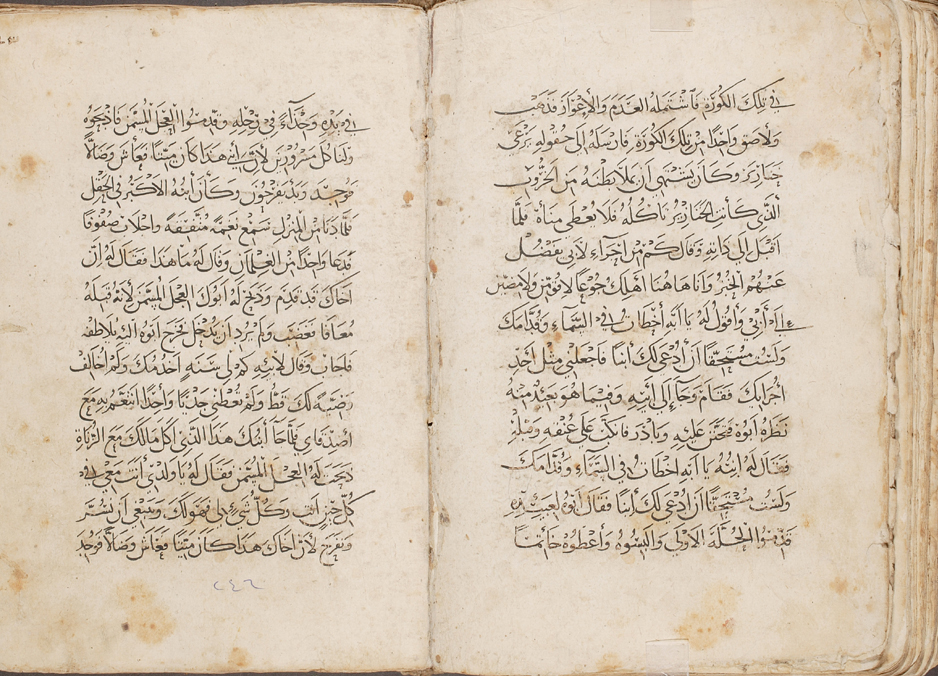 في تلك الكورة فاشتمله العدم والاعواز فذهب
ولاصق واحدا من تلك الكورة فارسله الى حقوله يرعى
خنازير وكان يشتهي ان يملا بطنه من الخرنوب
الذي كانت الخنازير تاكله فلا يعطى مناه فلما
اقبل الى ذاته وقال كم من اجراء لابي يفضل
عنهم الخبز وانا هاهنا اهلك جوعا لاقومن ولامضين
الى أبي وأقول له يا ابه أخطات في السماء وقدامك
ولست مستحقا أن أدعى لك ابنا فاجعلني مثل احد
اجرايك فقام وجا إلى ابيه وفيما هو بعيد منه
نظره ابوه فتحنن عليه وبادر فاتكى على عنقه وقبله
فقال له ابنه يا ابه اخطات في السماء وقدامك
ولست مستحقا أن ادعى لك ابنا فقال ابوه لعبيده
قدموا الحلة الاولى والبسوه وأعطوه خاتما
في يده وحذاء في رجله وقدموا العجل المسمن فاذبحوه
ولناكل مسرورين لأن ابني هذا كان ميتا فعاش وضالا
فوجد وبدو يفرحون وكان ابنه الأكبر في الحقل
فلما دنا من المنزل سمع نغمة متفقة واحلات صفوفا
فدعا واحدا من الغلمان وقال له ما هذا فقال له ان
اخاك قد قدم وذبح له أبوك العجل المسمن لانه قبله
معافا فغضب ولم يرد ان يدخل فخرج ابوه اليه يلاطفه
فاجاب وقال لابيه كم لي سنة اخدمك ولم اخالف
وصية لك قط ولم تعطني جديا واحدا اتنعم به مع
اصدقاي فلما جا ابنك هذا الذي اكل مالك مع الزناة
ذبحت له العجل المسمن فقال له يا ولدي أنت معي في
كل حين انت وكل شيء لي فهو لك وينبغي أن نسر
ونفرح لان اخاك هذا كان ميتا فعاش وضالا فوجد
٢٤٦